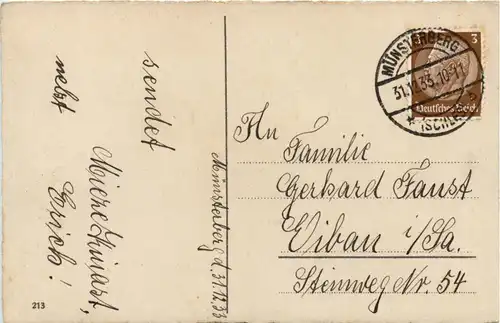 sendet
Mieze Kinast,
nebst
Erich!
213
Münsterberg d. 31.12.33
MÜNSTERBERG
31.12.33.10-11
* (SCHLES)
3
Deutsches Reich
An
Familie
Gerhard Faust
Eibau i/Sa.
Steinweg Nr. 54